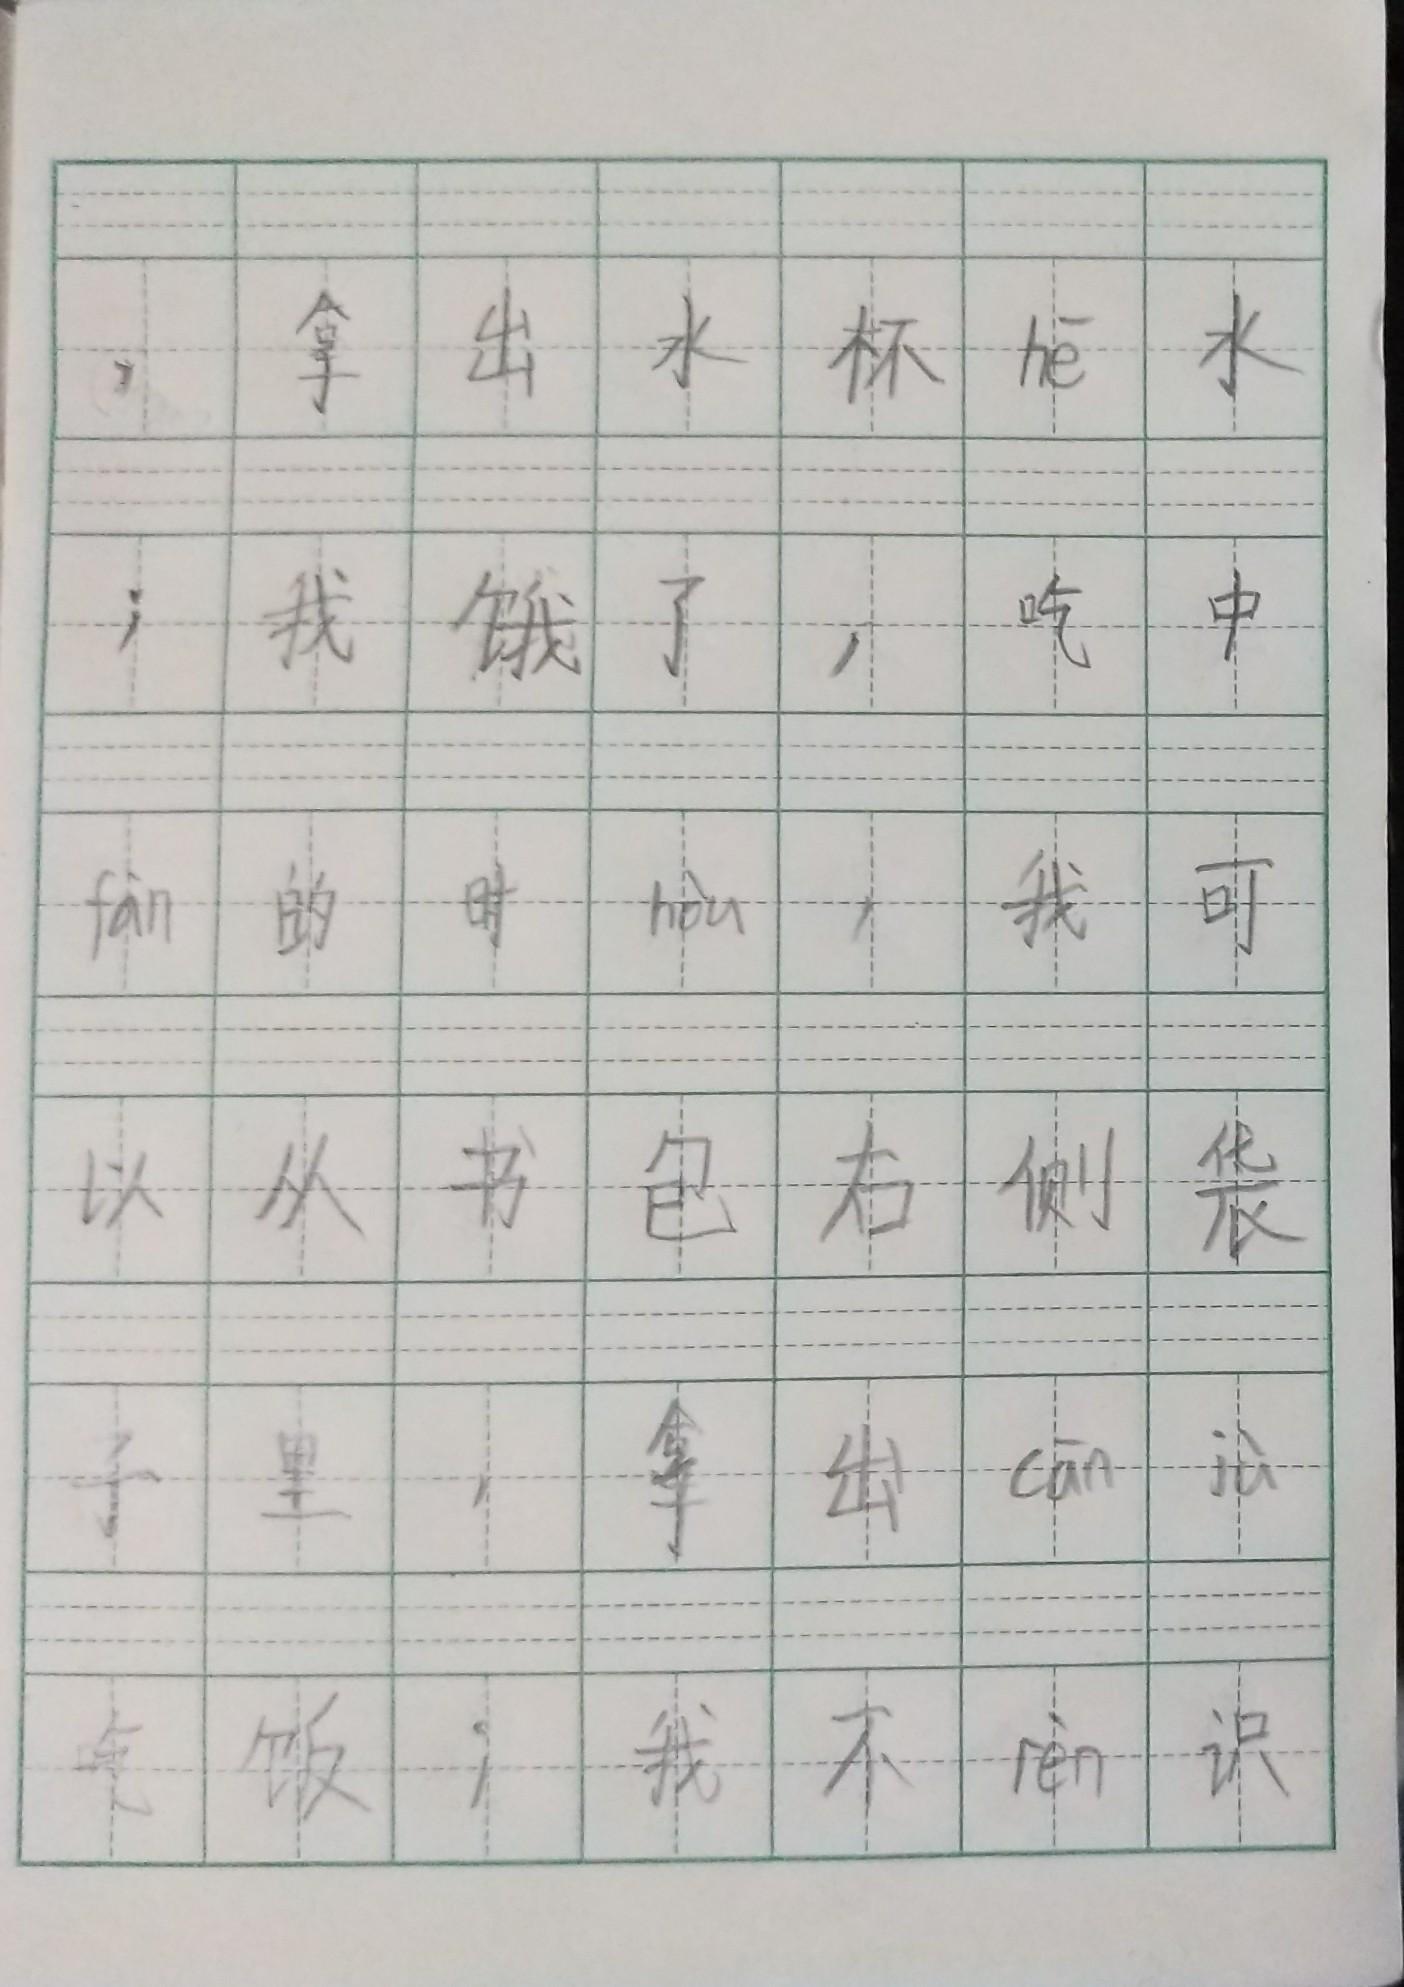 ，拿出水杯hē水
；我饿了，吃中
fàn的时hòu，我可
以从书包右侧袋
子里，拿出cānjù
吃饭；我不rèn识